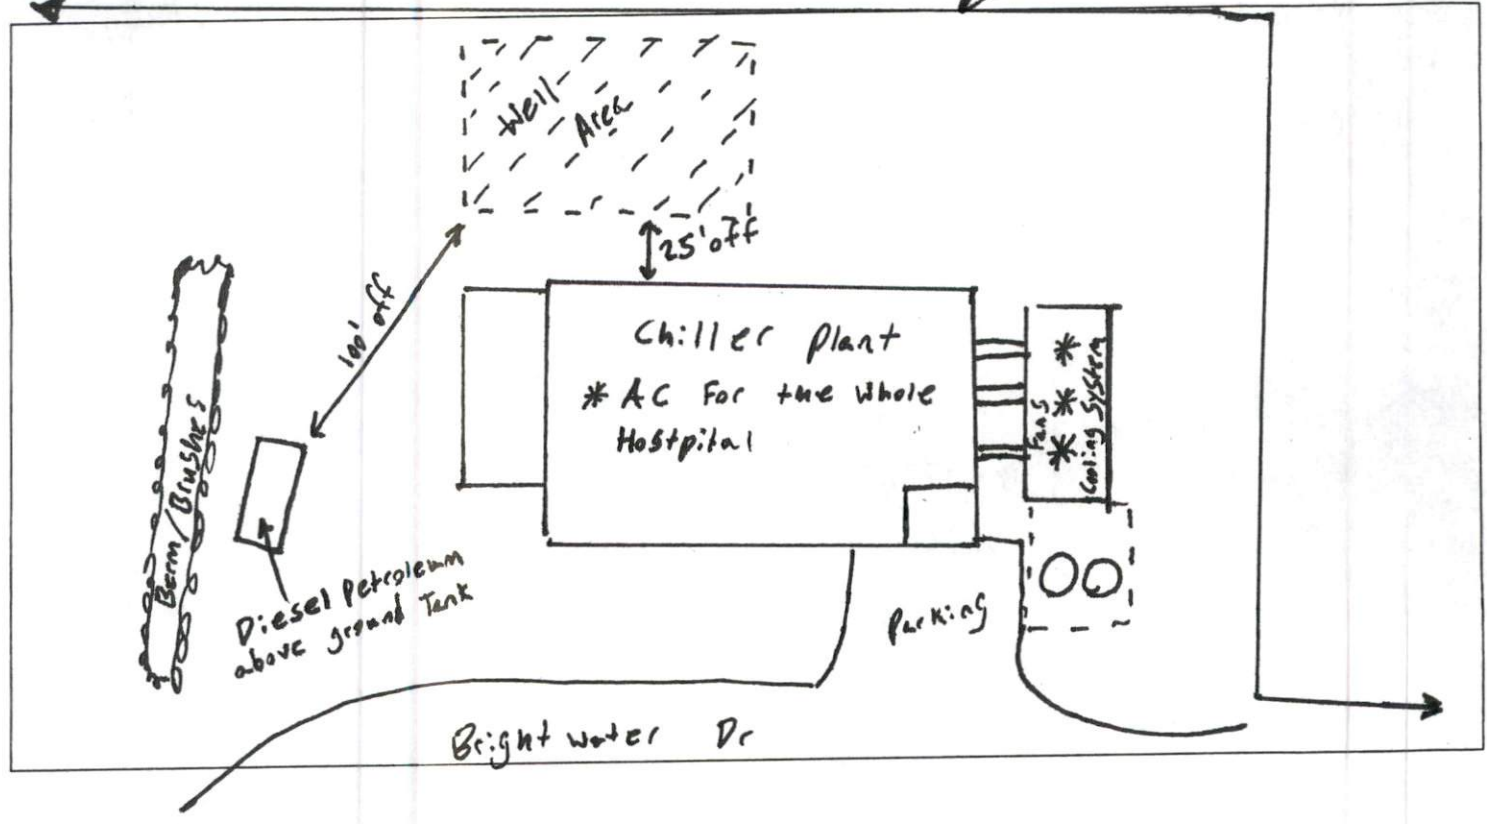 Well
Area
25' off
100' off
Chiller Plant
* AC For the Whole
Hostpital
Fans
Cooling System
Berm/Brushes
Diesel Petroleum
above ground Tank
Parking
Brightwater Dr